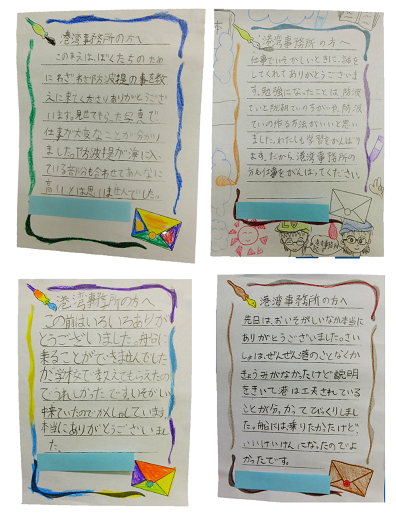 港湾事務所の方へ
このまえは、ぼくたちのため
にわざわざ防波堤の事を教
えに来てくださりありがとうござ
います。見せてもらった写真で
仕事が大変なことが分かり
ました。防波堤が海に入っ
ている部分も合わせてあんなに
高いとは思いませんでした。
港湾事務所の方へ
仕事でいそがしいときに、話を
してくれてありがとうございま
す。勉強になったことは、防波
ていと防潮ていのちがいや、防波
ていの作る方法がいいと思い
ました。わたしも学習をがんばり
ます。だから、港湾事務所の
方も仕事をがんばってください。
港湾事務所の方へ
この前はいろいろありが
とうございました。船に
乗ることができませんでした
が、学校で教えてもらえたの
でうれしかったです。いそがしい
中来ていたのでかんしゃしています。
本当にありがとうございまし
た。
港湾事務所の方へ
先日は、おいそがしいなか本当に
ありがとうございました。さい
しょは、ぜんぜん港のことなくか
きょうみがなかたけど説明
をきいて港は工夫されている
ことが分かってびっくりしまし
た。船には乗りたかたけど、
いいけいけんになったのでよ
かったです。